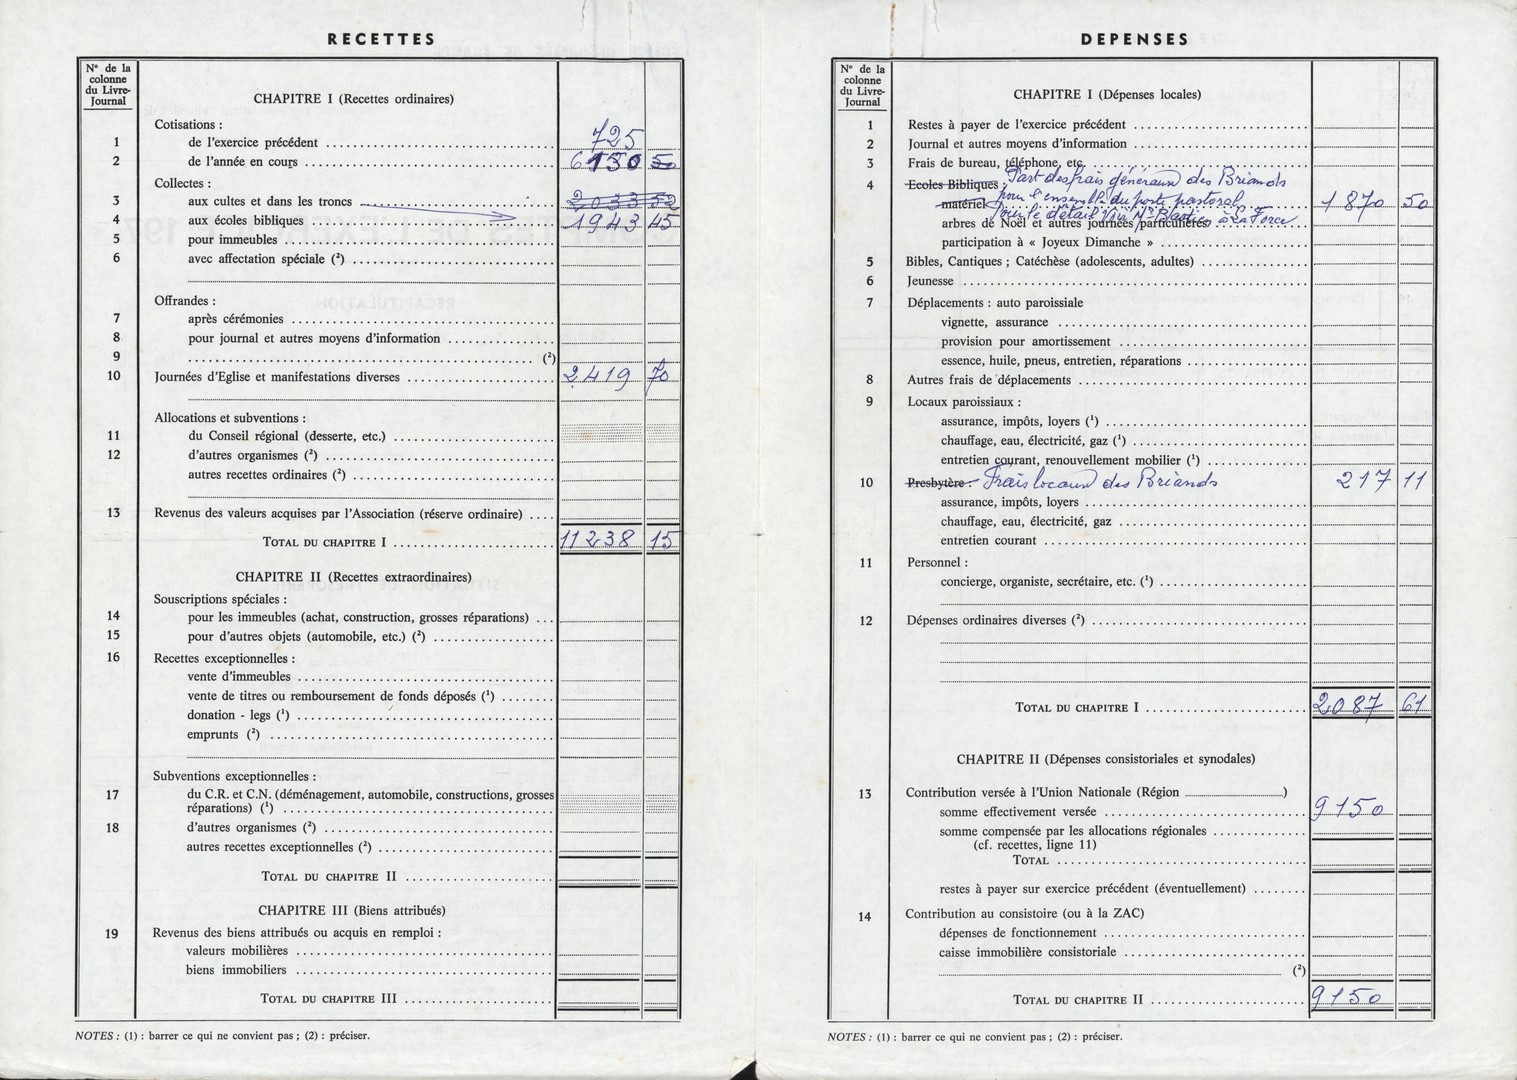 RECETTES
N° de la
colonne
du Livre-
Journal
CHAPITRE I (Recettes ordinaires)
Cotisations :
1 de l'exercice précédent 725
2 de l'année en cours 6150 50
Collectes :
3 aux cultes et dans les troncs 2033 52
4 aux écoles bibliques 1943 45
5 pour immeubles
6 avec affectation spéciale (²)
Offrandes :
7 après cérémonies
8 pour journal et autres moyens d'information
9 (²)
10 Journées d'Eglise et manifestations diverses 2419 70
Allocations et subventions :
11 du Conseil régional (desserte, etc.)
12 d'autres organismes (²)
autres recettes ordinaires (²)
13 Revenus des valeurs acquises par l'Association (réserve ordinaire)
TOTAL DU CHAPITRE I 11238 15
CHAPITRE II (Recettes extraordinaires)
Souscriptions spéciales :
14 pour les immeubles (achat, construction, grosses réparations)
15 pour d'autres objets (automobile, etc.) (²)
16 Recettes exceptionnelles :
vente d'immeubles
vente de titres ou remboursement de fonds déposés (¹)
donation - legs (¹)
emprunts (²)
Subventions exceptionnelles :
17 du C.R. et C.N. (déménagement, automobile, constructions, grosses
réparations) (¹)
18 d'autres organismes (²)
autres recettes exceptionnelles (²)
TOTAL DU CHAPITRE II
CHAPITRE III (Biens attribués)
19 Revenus des biens attribués ou acquis en remploi :
valeurs mobilières
biens immobiliers
TOTAL DU CHAPITRE III
NOTES : (1) : barrer ce qui ne convient pas ; (2) : préciser.
DEPENSES
N° de la
colonne
du Livre-
Journal
CHAPITRE I (Dépenses locales)
1 Restes à payer de l'exercice précédent
2 Journal et autres moyens d'information
3 Frais de bureau, téléphone, etc.
4 Ecoles Bibliques : Part des frais généraux des Briands
matériel pour l'ensemble du poste pastoral 1870 50
pour le détail voir à La Force
arbres de Noël et autres journées particulières
participation à « Joyeux Dimanche »
5 Bibles, Cantiques ; Catéchèse (adolescents, adultes)
6 Jeunesse
7 Déplacements : auto paroissiale
vignette, assurance
provision pour amortissement
essence, huile, pneus, entretien, réparations
8 Autres frais de déplacements
9 Locaux paroissiaux :
assurance, impôts, loyers (¹)
chauffage, eau, électricité, gaz (¹)
entretien courant, renouvellement mobilier (¹)
10 Presbytère : Frais locaux des Briands 217 11
assurance, impôts, loyers
chauffage, eau, électricité, gaz
entretien courant
11 Personnel :
concierge, organiste, secrétaire, etc. (¹)
12 Dépenses ordinaires diverses (²)
TOTAL DU CHAPITRE I 2087 61
CHAPITRE II (Dépenses consistoriales et synodales)
13 Contribution versée à l'Union Nationale (Région )
somme effectivement versée 9150
somme compensée par les allocations régionales
(cf. recettes, ligne 11)
TOTAL
restes à payer sur exercice précédent (éventuellement)
14 Contribution au consistoire (ou à la ZAC)
dépenses de fonctionnement
caisse immobilière consistoriale
(²)
TOTAL DU CHAPITRE II 9150
NOTES : (1) : barrer ce qui ne convient pas ; (2) : préciser.